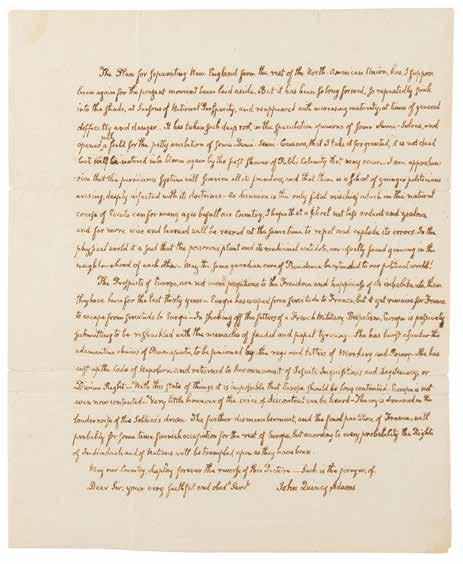 The Plan for separating New England from the rest of the North-American Union, has, I suppose
been again for the present moment been laid aside. But it has been so long formed, so repeatedly sunk
into the shade, at Seasons of National Prosperity, and reappeared with increasing maturity, at times of general
difficulty and danger. It has taken such deep root, in the speculative opinions of some Semi-Solons, and
opened such a field for the petty ambition of some Semi-Caesars, that I take it for granted, it is not dead
but will be matured into bloom again by the first shower of Public Calamity that may occur. I am apprehen-
sive that this pernicious System will survive all its founders, and that there is a School of younger politicians
arising, deeply infected with its doctrines. As disunion is the only fatal mischief which in the natural
course of Events can for many ages befall our Country, I hope that a School not less ardent and zealous
and far more wise and learned will be reared at the same time to repel and explode its errors. In the
physical world it is said that the poisonous plant and its medicinal antidote, are usually found growing in the
neighbourhood of each other. May the same guardian care of Providence be extended to our political world!
The Prospects of Europe, are not more propitious to the Freedom and happiness of its inhabitants, than
they have been for the last thirty years. Europe has escaped from servitude to France, but it yet remains for France
to escape from servitude to Europe. In shaking off the fetters of a French Military Despotism, Europe is passively
submitting to be reshackled with the manacles of feudal and papal tyranny. She has burst asunder the
adamantine chains of Buonaparte, to be pinioned by the rags and tatters of Monkery and Popery. She has
cast up the Code of Napoleon, and returned to her own vomit of Jesuits, Inquisitions and Legitimacy or
Divine Right. With this state of things it is impossible that Europe should be long contented. Europe is not
even now contented. Very little however of the voice of discontent can be heard. The cry is drowned in the
louder noise of the Soldier's drum. The further dismemberment, and the final partition of France, will
probably for some time furnish occupation for the rest of Europe, but according to every probability the Rights
of Individuals and of Nations will be trampled upon as they have been.
May our Country, display forever the reverse of this Picture. Such is the prayer, of
Dear Sir, your very faithful and obedt. Servt.
John Quincy Adams